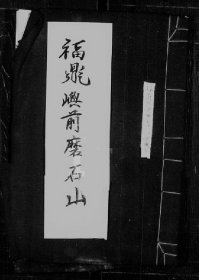 福鼎嶼前磨石山